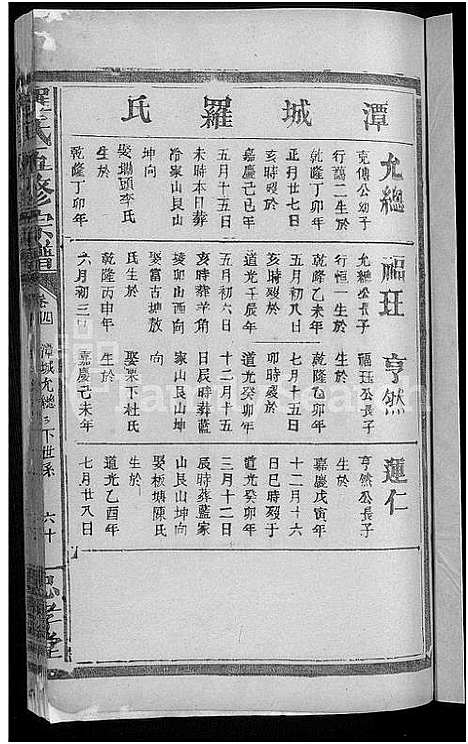 潭城羅氏
允總
克傳公幼子
行萬二生於
乾隆丁卯年
正月廿七日
亥時歿於
嘉慶己巳年
五月十五日
未時本日葬
冷家山艮山
坤向
娶瑞頭李氏
生於
乾隆丁卯年
福珏
允總公長子
行恒一生於
乾隆乙未年
五月初八日
亥時歿於
道光壬辰年
五月初六日
亥時葬羊角
陵卯山酉向
娶富古坑放
氏生於
乾隆丙申年
六月初三日
亨然
福珏公長子
生於
乾隆乙卯年
七月十五日
卯時歿於
道光癸卯年
十二月十五
日辰時葬藍
家山艮山坤
向
娶栗下杜氏
生於
嘉慶己未年
蓮仁
亨然公長子
生於
嘉慶戊寅年
十二月十六
日巳時歿于
道光癸卯年
三月十二日
辰時葬藍家
山艮山坤向
娶板塘陳氏
生於
道光乙酉年
七月廿八日
羅氏重修宗譜
卷四
潭城允總公下世系
六十
忠孝堂